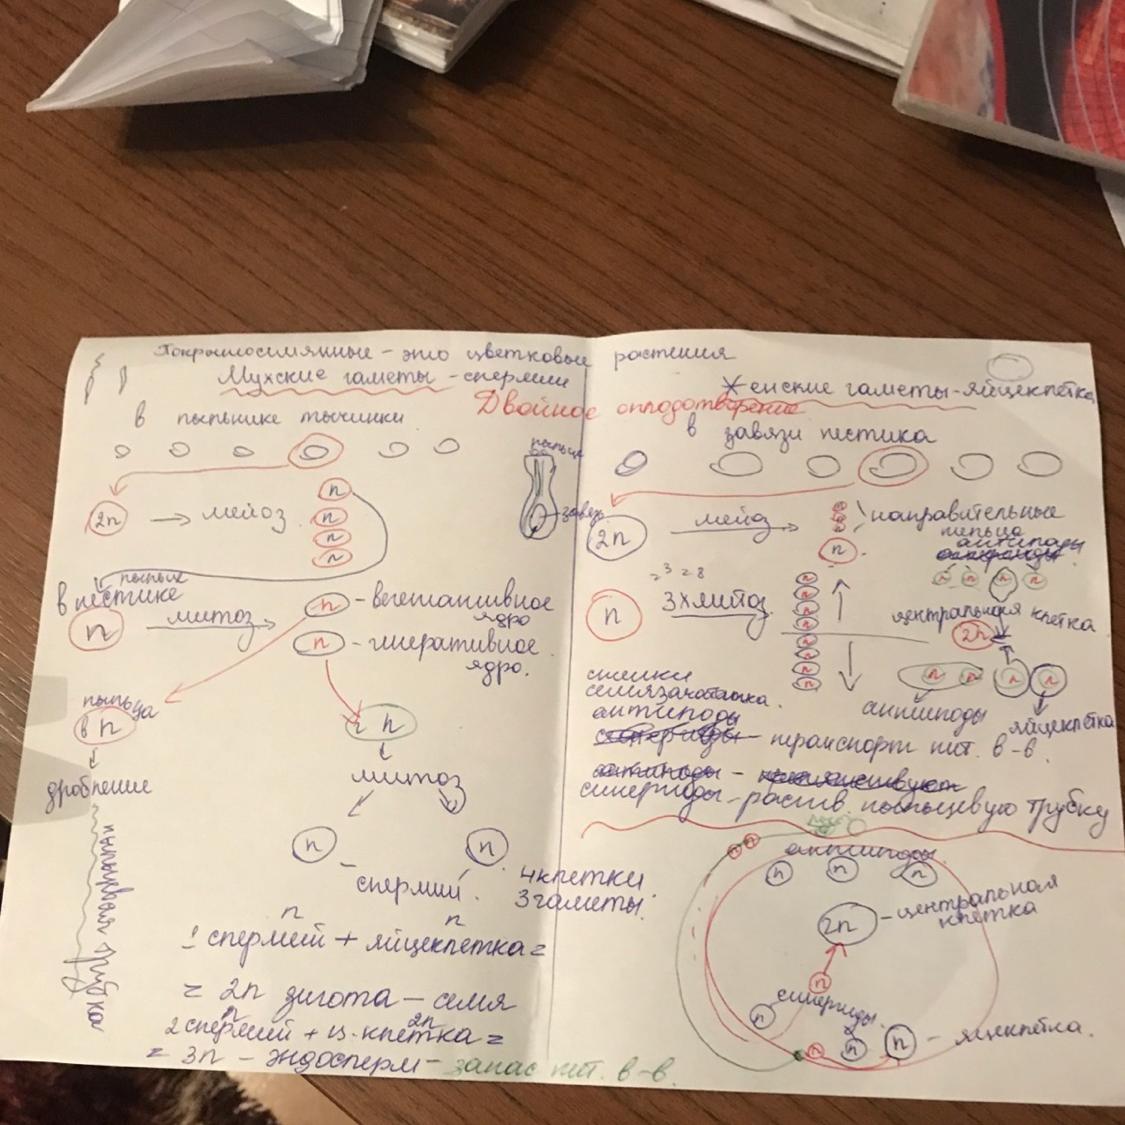 Покрытосемянные - это цветковые растения
Мужские гаметы - спермии
Женские гаметы - яйцеклетка
Двойное оплодотворение
в пыльнике тычинки
в завязи пестика
пыльца
завязь
2n → мейоз
n
n
n
n
2n мейоз
n
направительные тельца
антиподы
n n n n
пыльца
в пестике
n митоз
n - вегетативное ядро
n - генеративное ядро.
2³ = 8
n 3хмитоз
n
n
n
n
n
n
n
n
центральная клетка
2n
n n n n
антиподы
яйцеклетка
пыльца
в n
г n
дробление
пыльцевая трубка
митоз
n n
спермий
4клетки
3гаметы
семязачатка.
антиподы
- транспорт пит. в-в.
синергиды - раств. пыльцевую трубку
n n
1 спермий + яйцеклетка =
= 2n зигота - семя
n 2n
2 спермий + ц. клетка =
= 3n - эндосперм - запас пит. в-в.
антиподы.
n n n
2n - центральная клетка
n
синергиды.
n n n
n - яйцеклетка.